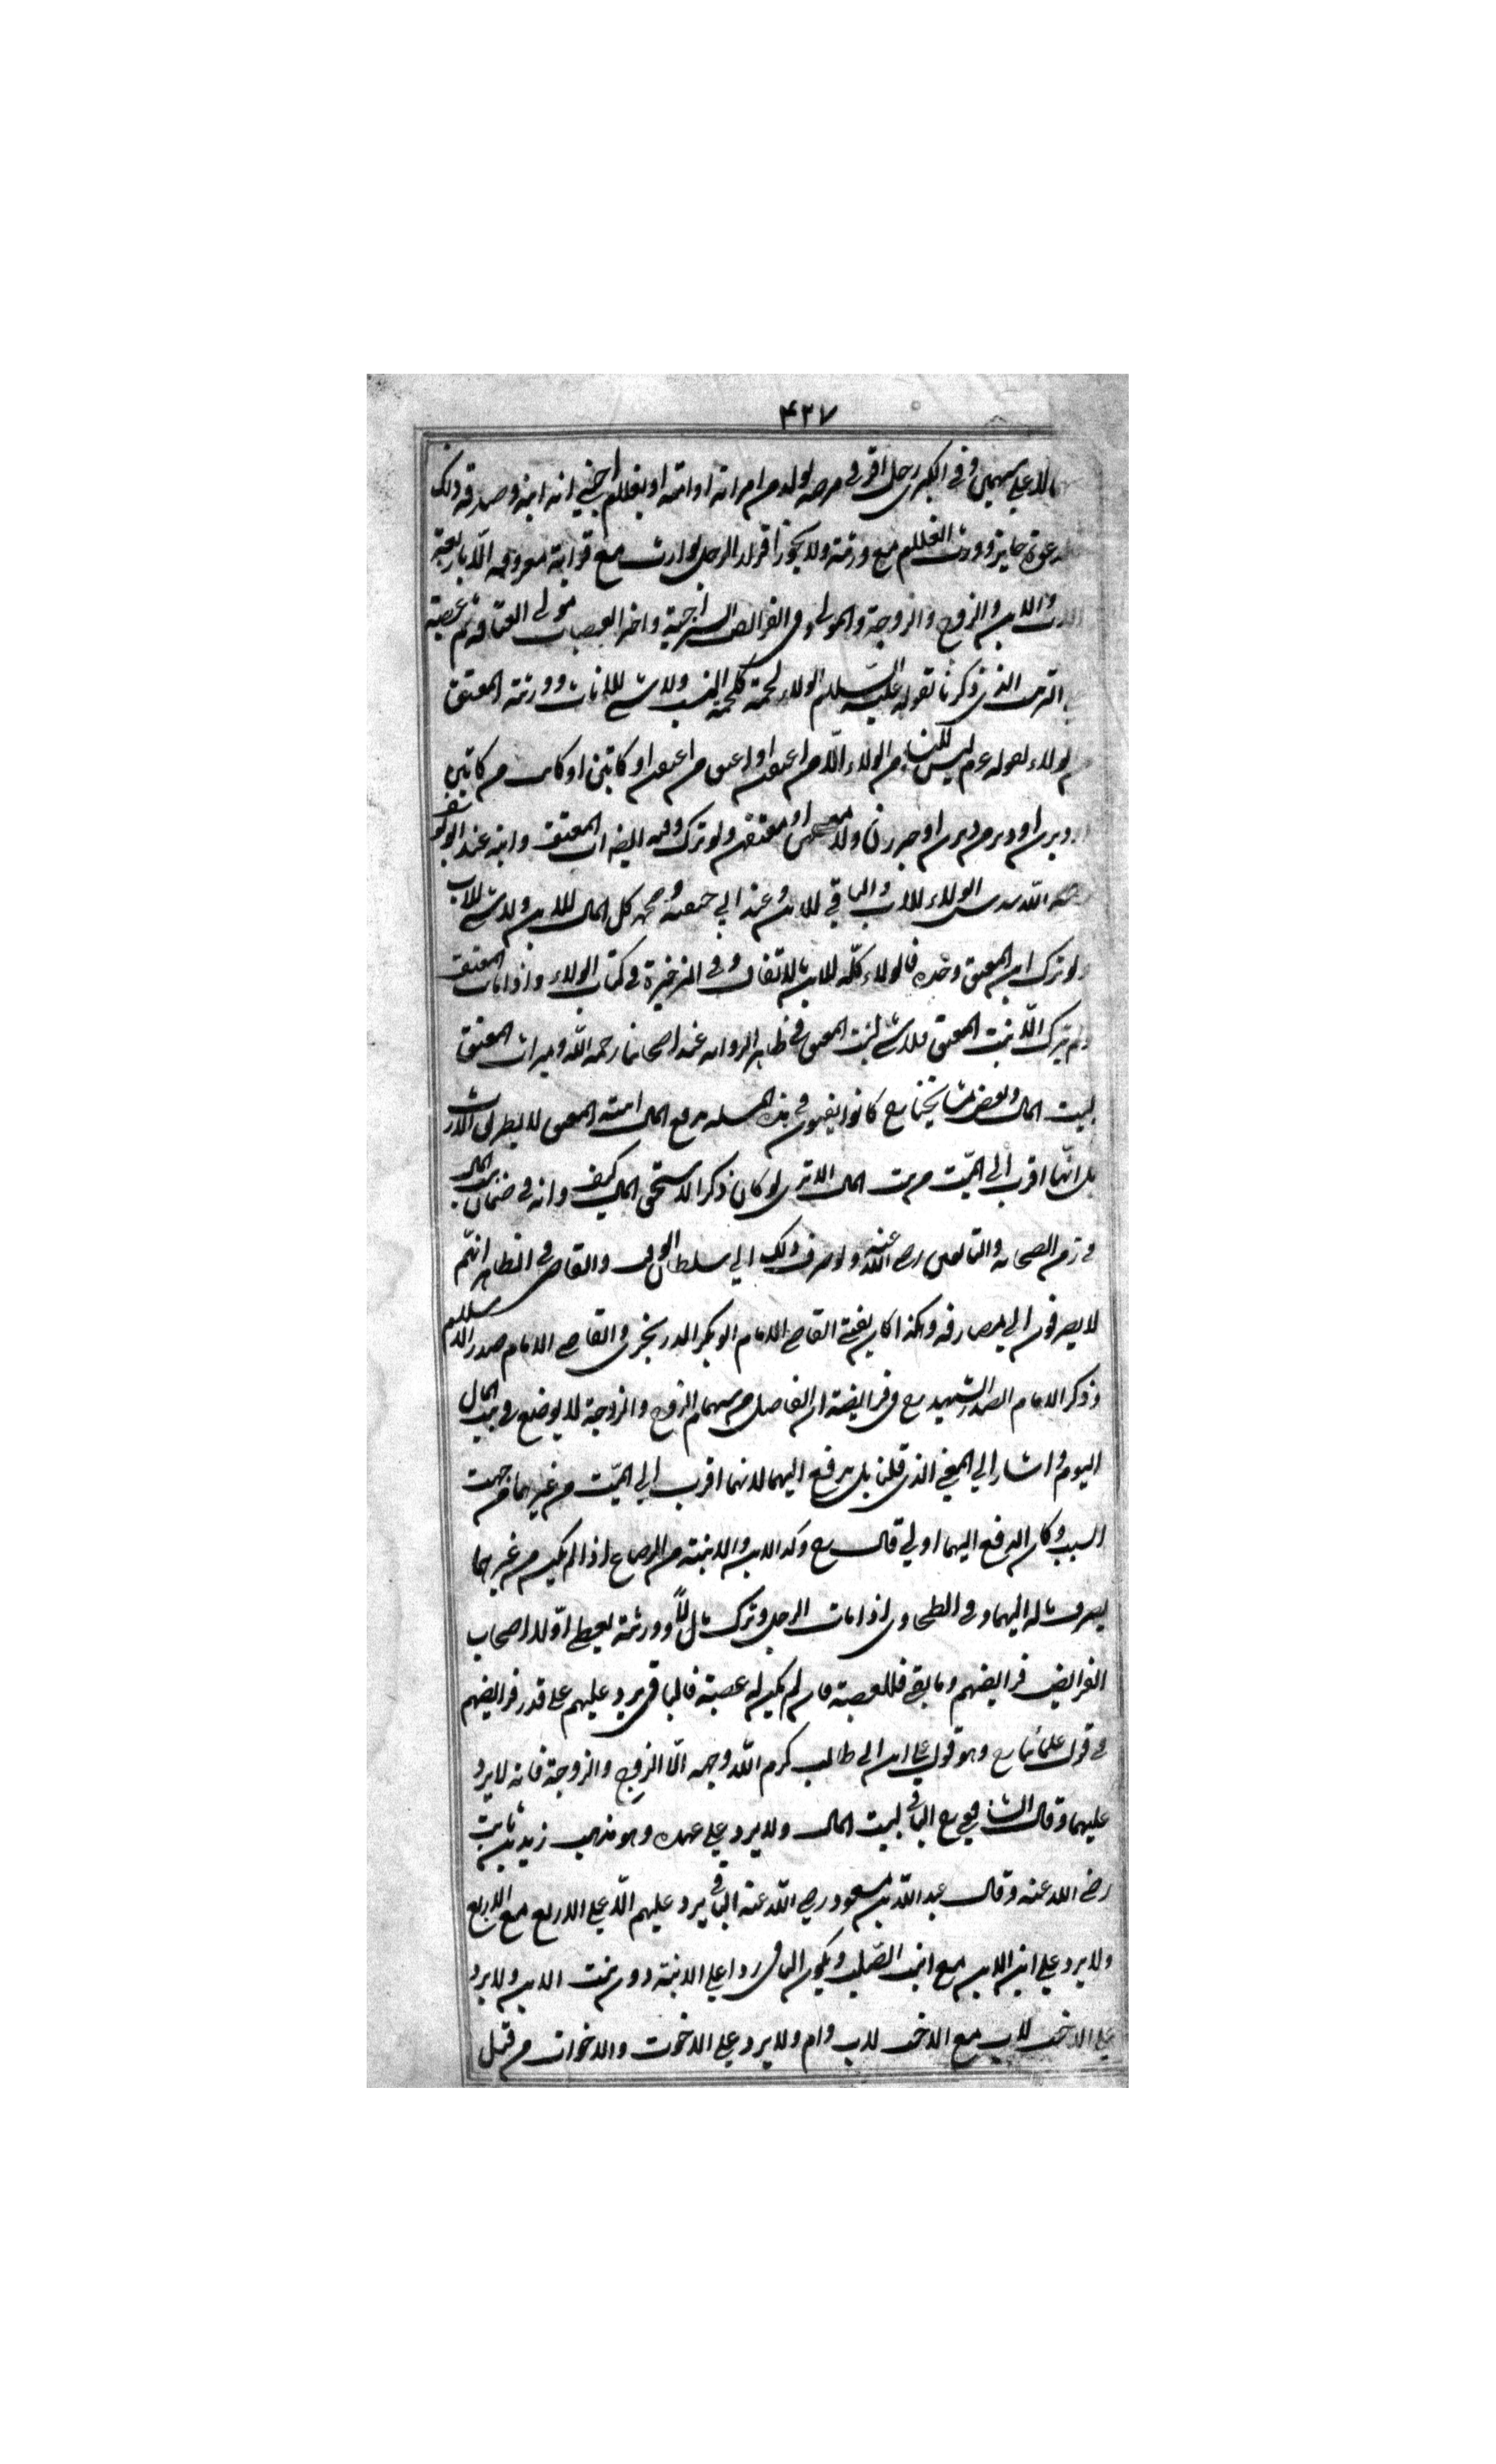 ۴۳۷
على سهمين وفي الكبرى رجل اقر في مرضه لولد من امراته او امته او بغلام اجنبي انه ابنه وصدقه ذلك
جايزة وورث الغلام مع ورثته ولا يجوز اقرار الرجل بوارث مع قرابة معروفة الا باربعة
والابن والزوج والزوجة والمولى وفي الفرائض السراجية واخر العصبات مولى العتاقة ثم عصبته
الترتيب الذي ذكرنا لقوله عليه السلام الولاء لحمة كلحمة النسب ولا شي للاناث وورثة المعتق
الولاء لقوله عم ليس للنساء من الولاء الا ما اعتقن او اعتق من اعتقن او كاتبن او كاتب من كاتبن
او دبرن او دبر من دبرن او جر ولاء معتقهن او معتق معتقهن ولو ترك اب المعتق وابنه عند ابو يوسف
رحمه الله سدس الولاء للاب والباقي للابن وعند ابي حنيفة ومحمد كل المال للابن ولا شي للاب
ولو ترك ابن المعتق وجده فالولاء كله للابن بالاتفاق وفي الذخيرة في كتاب الولاء واذا مات المعتق
ولم يترك الا بنت المعتق فلا شي لبنت المعتق في ظاهر الرواية عند اصحابنا رحمه الله وميراث المعتق
لبيت المال وبعض مشايخنا رح كانوا يفتون في هذه المسئلة بدفع المال ابنة المعتق لا بطريق الارث
بل انها اقرب الى الميت من بيت المال الا ترى لو كان ذكرا لاستحق المال كيف وانه في ضمان بيت المال
في زمن الصحابة والتابعين رضي الله عنهم ولو صرف ذلك الى سلطان الوقت والقاضي في الظاهر انهم
لا يصرفون الى مصارفه وهكذا كان يفتي القاضي الامام ابو بكر الزرنجري والقاضي الامام صدر الاسلام
وذكر الامام الصدر الشهيد رح في فرايضه ان الفاضل من سهام الزوج والزوجة لا يوضع في بيت المال
اليوم واشار الى المعنى الذي قلنا بل يدفع اليهما لانهما اقرب الى الميت من غيرهما من جهت
السبب وكان الدفع اليهما اولى قال رح وكذا الابن والابنة من الرضاع اذا لم يكن من غيرهما
يصرف ماله اليهما وفي الطحاوي اذا مات الرجل وترك مالا وورثة يعطى اولا اصحاب
الفرايض فرايضهم وما بقي فللعصبة فان لم يكن له عصبة فالباقي يرد عليهم على قدر فرايضهم
في قول علمائنا رح وهو قول علي ابن ابي طالب كرم الله وجهه الا الزوج والزوجة فانه لا يرد
عليهما وقال الشافعي رح الباقي لبيت المال ولا يرد على وهو مذهب زيد بن ثابت
رضي الله عنه وقال عبد الله بن مسعود رضي الله عنه الباقي يرد عليهم الا على الاربع مع الاربع
ولا يرد على ابنة الابن مع ابنة الصلب ويكون الباقي ردا على الابنة دون بنت الابن ولا يرد
على الاخت لاب مع الاخت لاب وام ولا يرد على الاخوت والاخوات من قبل